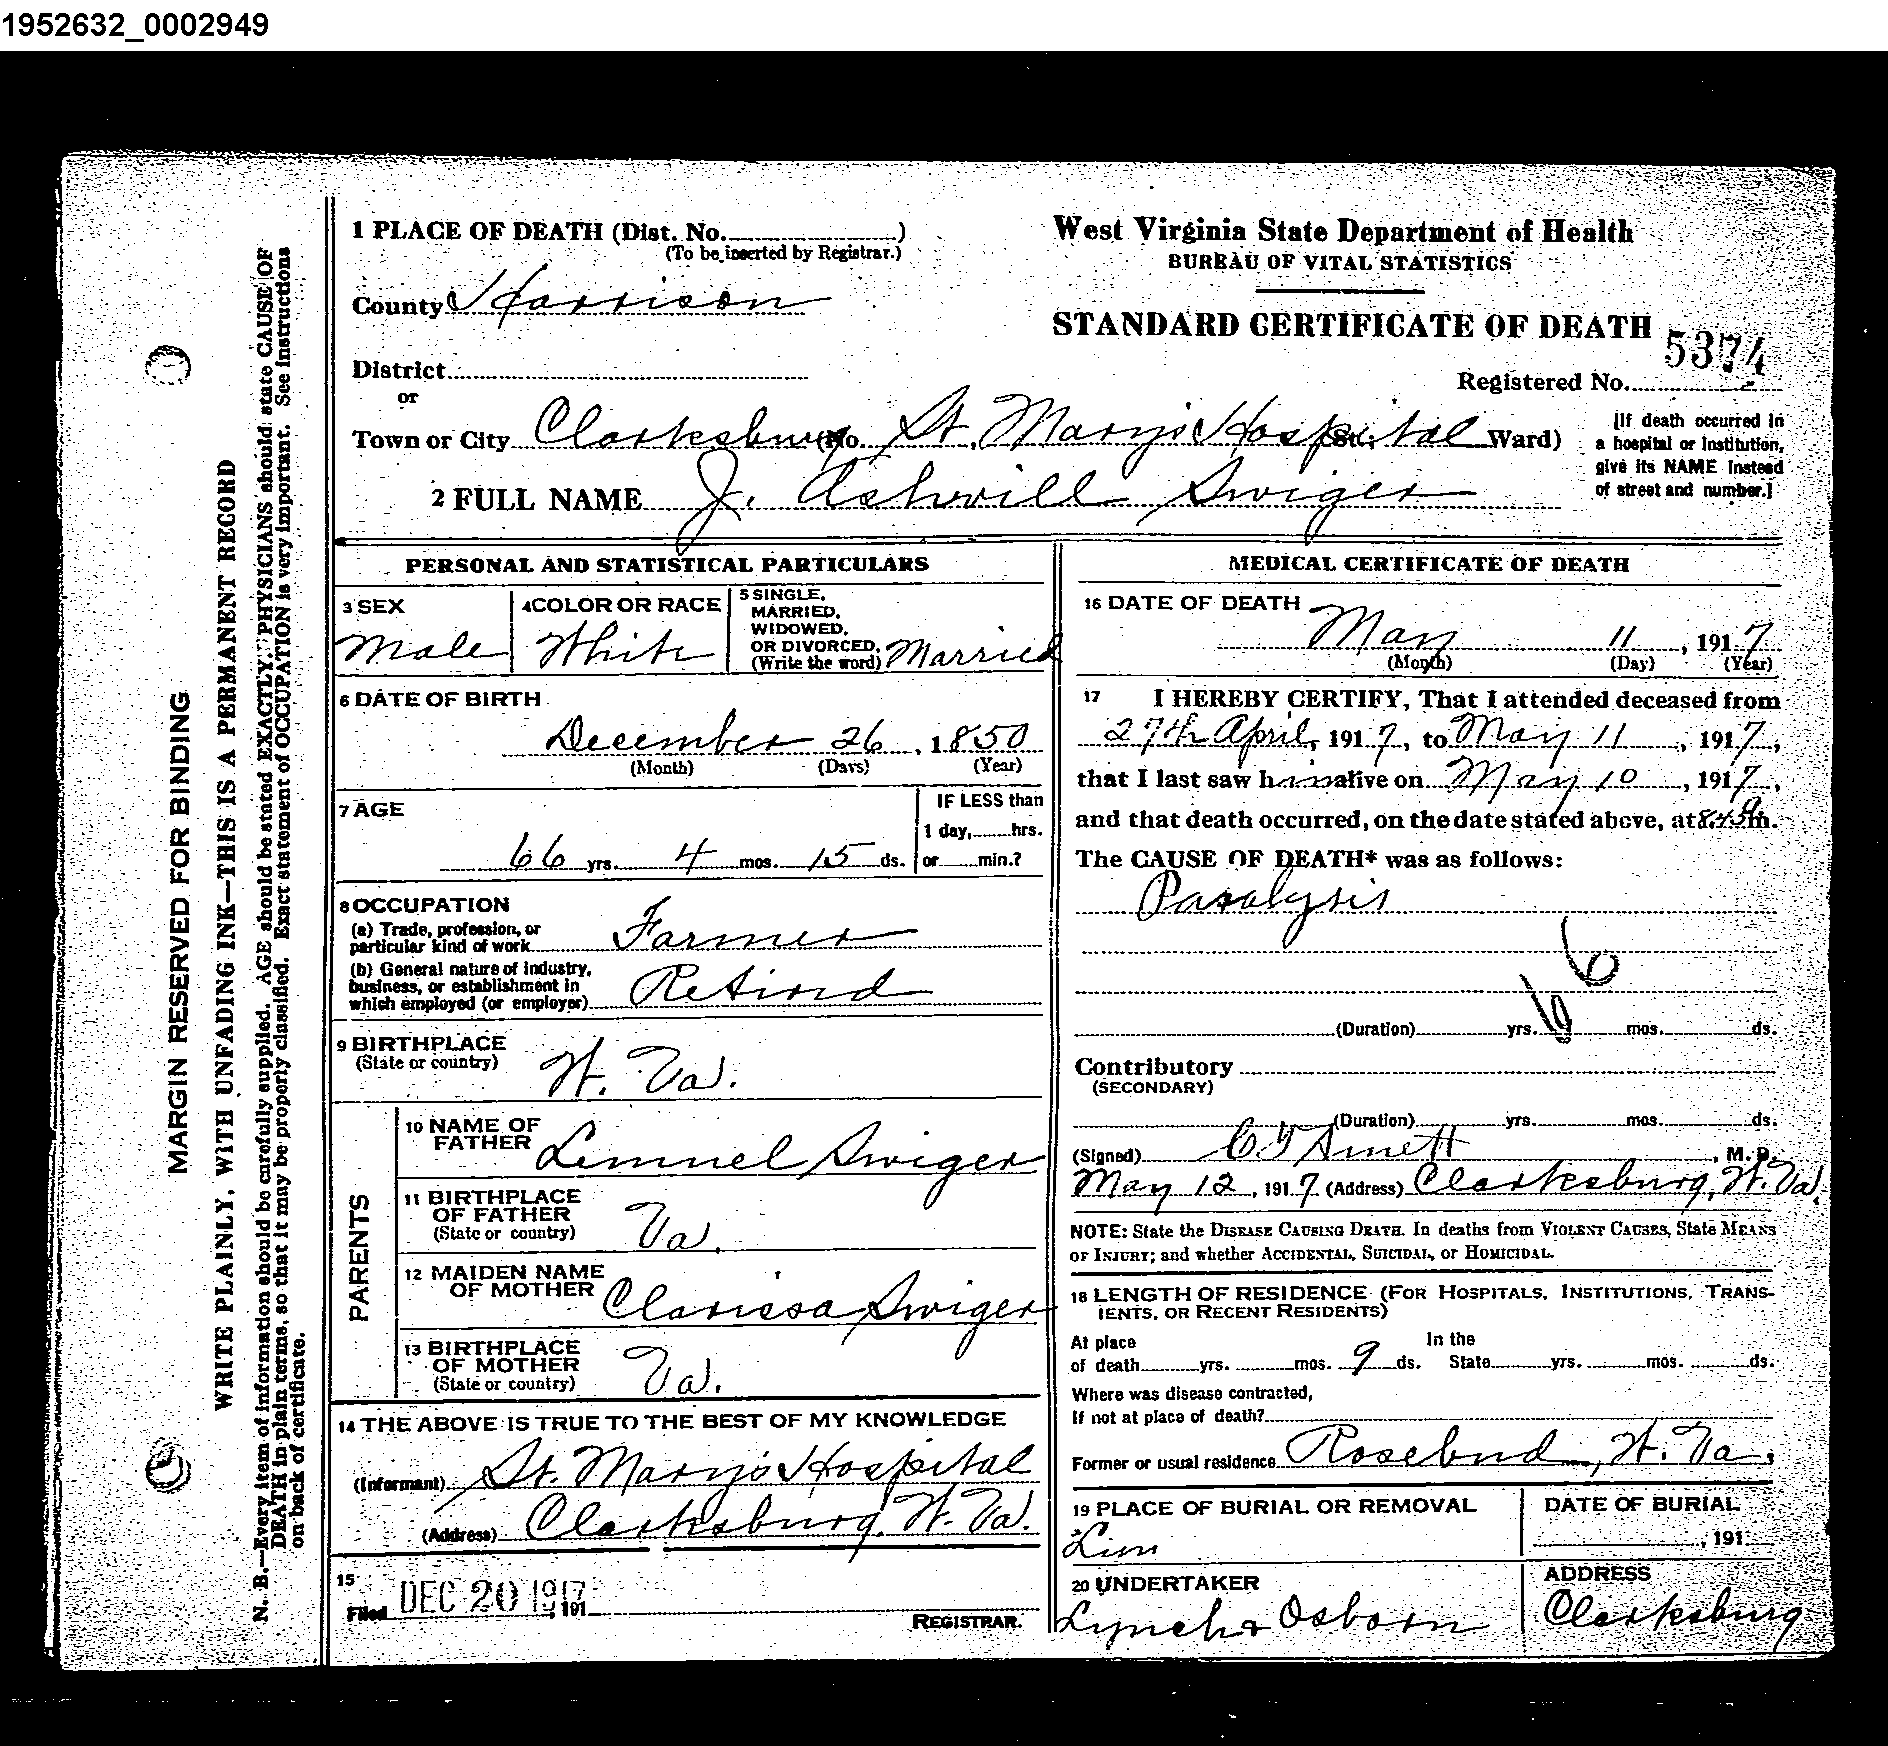 1952632_0002949
MARGIN RESERVED FOR BINDING
WRITE PLAINLY, WITH UNFADING INK—THIS IS A PERMANENT RECORD
N. B.—Every item of information should be carefully supplied. AGE should be stated EXACTLY. PHYSICIANS should state CAUSE OF
DEATH in plain terms, so that it may be properly classified. Exact statement of OCCUPATION is very important. See instructions
on back of certificate.
1 PLACE OF DEATH (Dist. No. )
(To be inserted by Registrar.)
County Harrison
District
or
Town or City Clarksburg (No. St. Mary's Hospital St.; Ward)
2 FULL NAME J. Ashwill Swiger
West Virginia State Department of Health
BUREAU OF VITAL STATISTICS
STANDARD CERTIFICATE OF DEATH
5374
Registered No.
[If death occurred in
a hospital or institution,
give its NAME instead
of street and number.]
PERSONAL AND STATISTICAL PARTICULARS
3 SEX
Male
4 COLOR OR RACE
White
5 SINGLE,
MARRIED,
WIDOWED,
OR DIVORCED,
(Write the word) Married
6 DATE OF BIRTH
December 26, 1850
(Month) (Days) (Year)
7 AGE
66 yrs. 4 mos. 15 ds.
IF LESS than
1 day, hrs.
or min.?
8 OCCUPATION
(a) Trade, profession, or
particular kind of work Farmer
(b) General nature of industry,
business, or establishment in
which employed (or employer) Retired
9 BIRTHPLACE
(State or country) W. Va.
PARENTS
10 NAME OF
FATHER Lemuel Swiger
11 BIRTHPLACE
OF FATHER
(State or country) Va.
12 MAIDEN NAME
OF MOTHER Clarissa Swiger
13 BIRTHPLACE
OF MOTHER
(State or country) Va.
14 THE ABOVE IS TRUE TO THE BEST OF MY KNOWLEDGE
(Informant) St. Mary's Hospital
(Address) Clarksburg, W. Va.
15
Filed DEC 20 1917, 191
REGISTRAR.
MEDICAL CERTIFICATE OF DEATH
16 DATE OF DEATH
May 11, 1917
(Month) (Day) (Year)
17 I HEREBY CERTIFY, That I attended deceased from
27th April, 1917, to May 11, 1917,
that I last saw him alive on May 10, 1917,
and that death occurred, on the date stated above, at 8.45 a m.
The CAUSE OF DEATH* was as follows:
Paralysis
6
6
(Duration) yrs. mos. ds.
Contributory
(SECONDARY)
(Duration) yrs. mos. ds.
(Signed) , M. D.
May 12, 1917 (Address) Clarksburg, W. Va.
NOTE: State the DISEASE CAUSING DEATH. In deaths from VIOLENT CAUSES, State MEANS
OF INJURY; and whether ACCIDENTAL, SUICIDAL, or HOMICIDAL.
18 LENGTH OF RESIDENCE (FOR HOSPITALS, INSTITUTIONS, TRANS-
IENTS, OR RECENT RESIDENTS)
At place In the
of death yrs. mos. 9 ds. State yrs. mos. ds.
Where was disease contracted,
If not at place of death?
Former or usual residence Rosebud, W. Va.
19 PLACE OF BURIAL OR REMOVAL
DATE OF BURIAL
, 191
20 UNDERTAKER
Lynch & Osborn
ADDRESS
Clarksburg